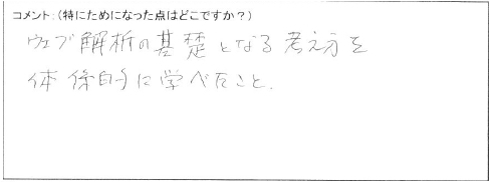 コメント：（特にためになった点はどこですか？）
ウェブ解析の基礎となる考え方を
体系的に学べたこと.